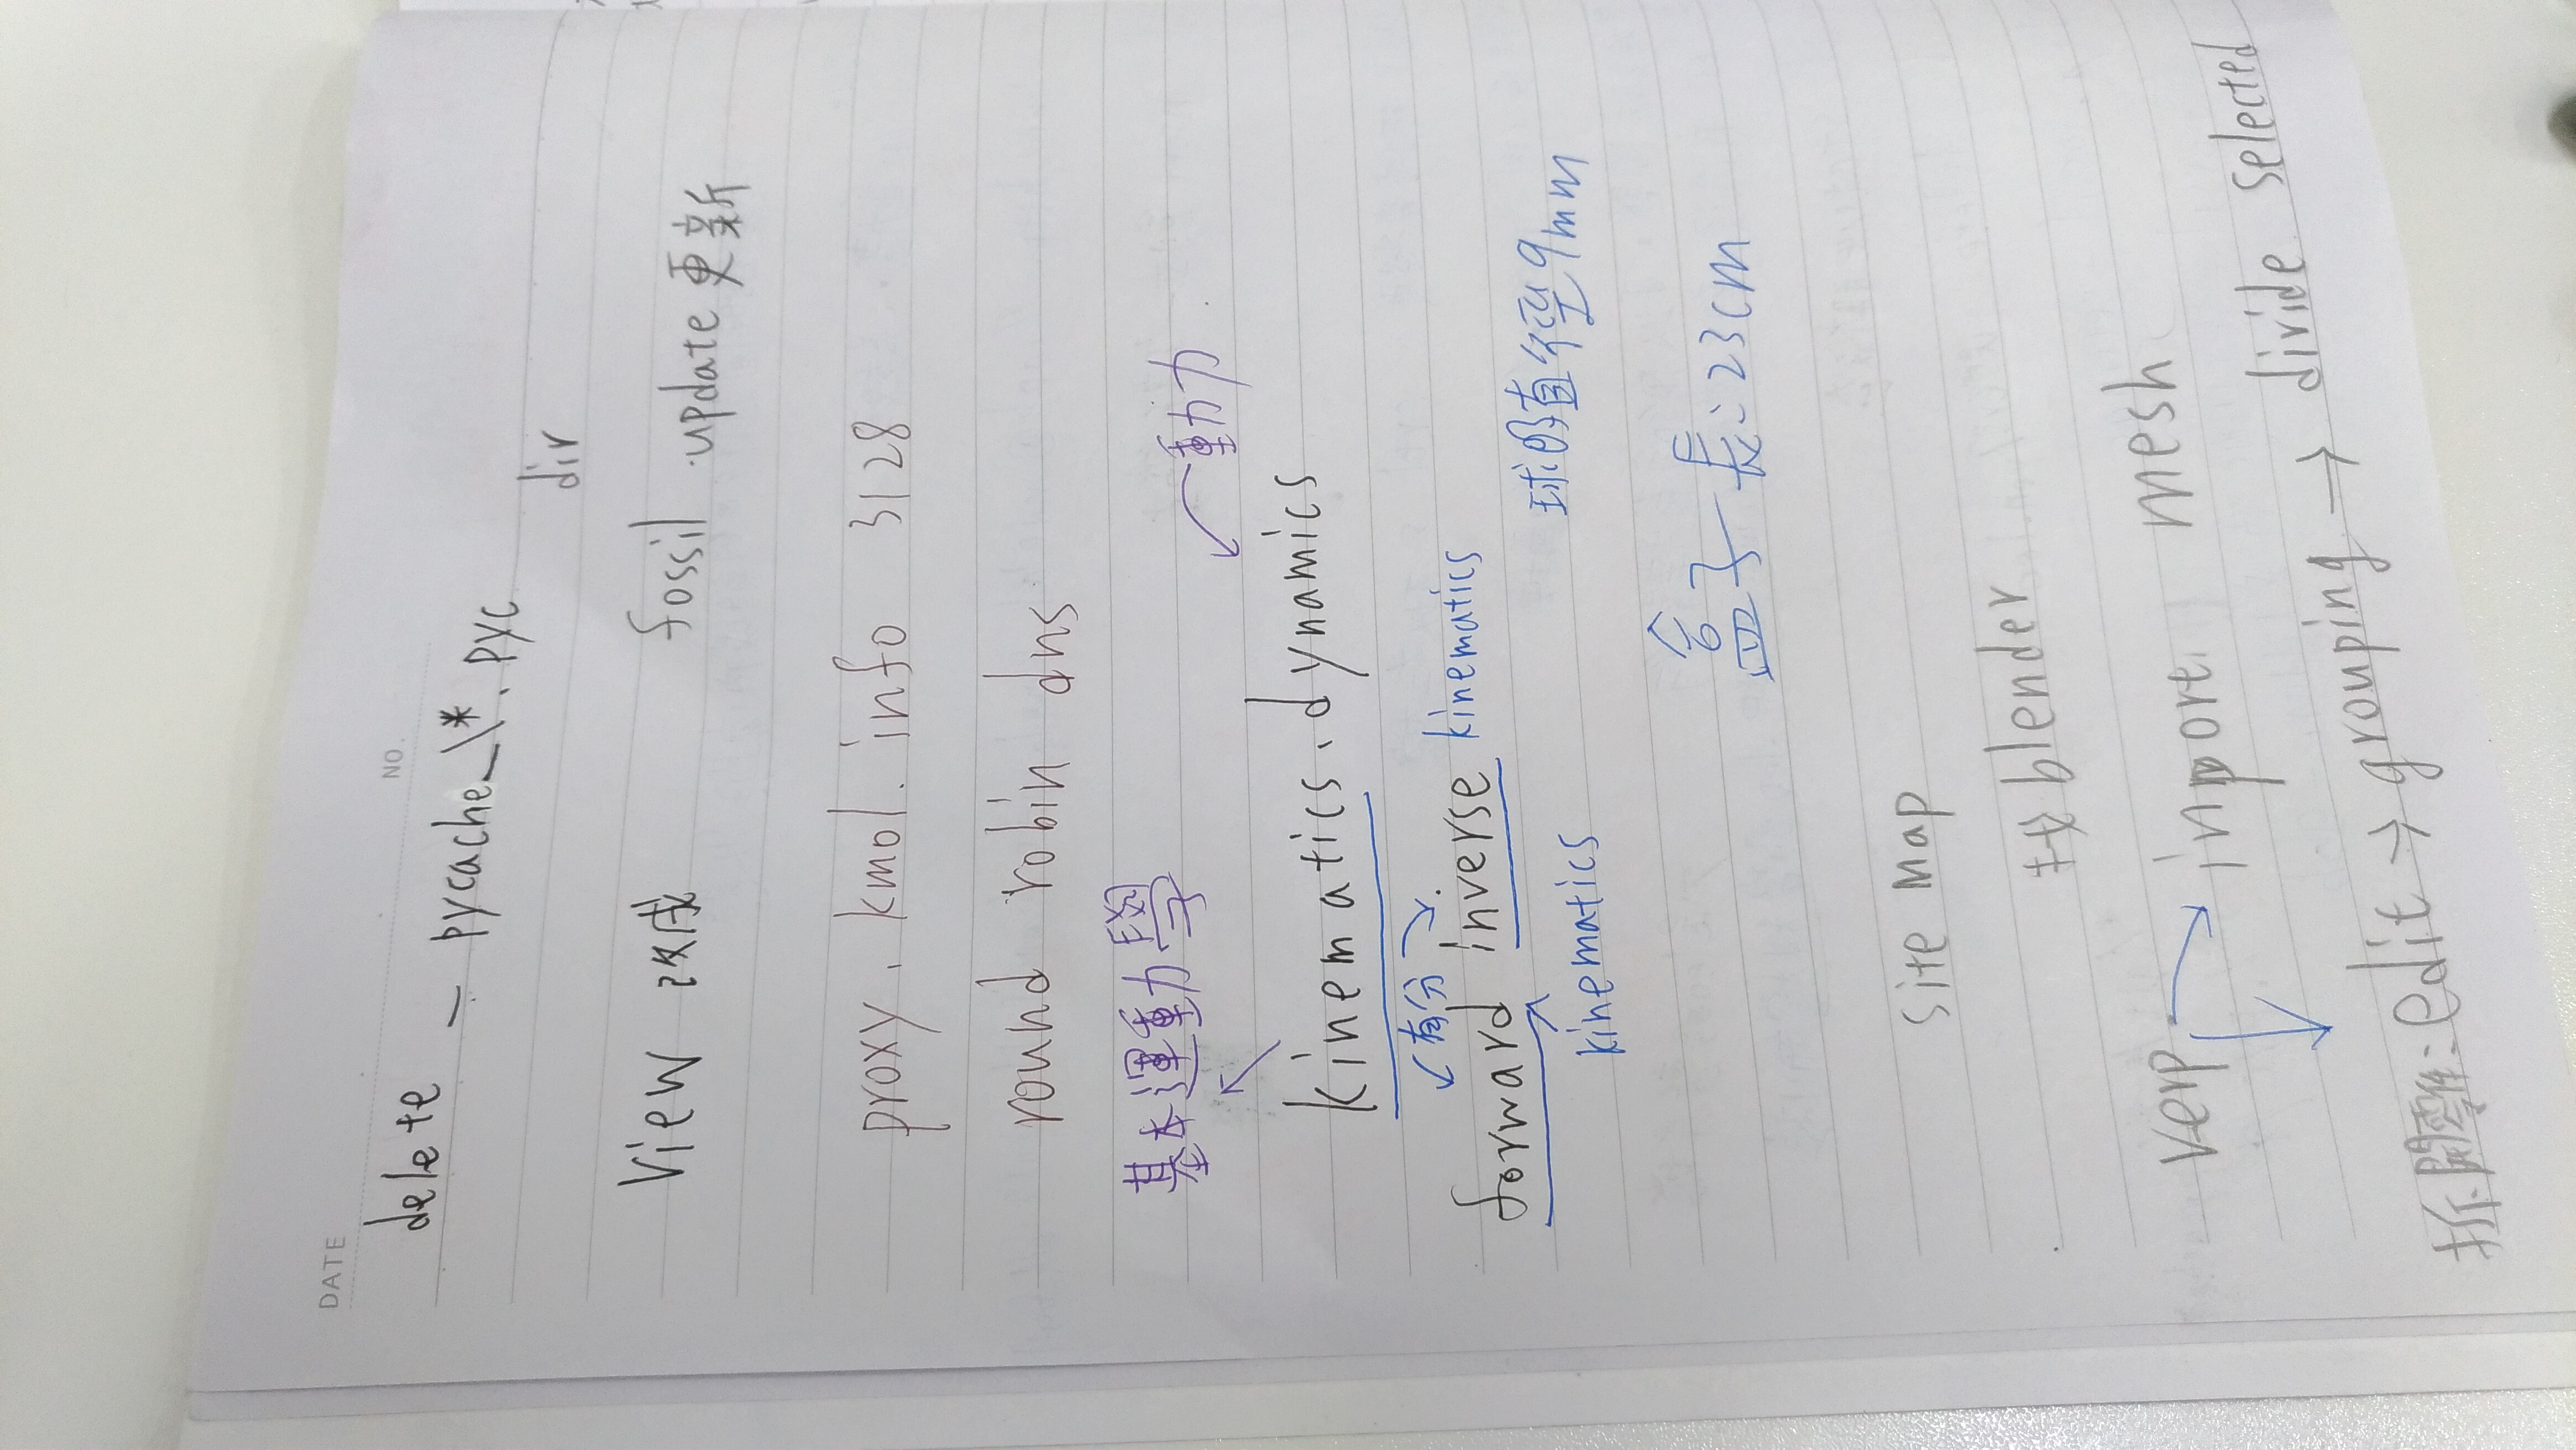 NO.
DATE
delete — pycache_\*.pyc
dir
View 改成 fossil update 更新
proxy.kmol.info 3128
round robin dns
基本運動學 動力
kinematics、dynamics
有分
forward inverse kinematics
kinematics
球的直徑9mm
盒子 長:23cm
site map
找 blender
Verp → inport mesh
拆零件:edit → grouping → divide selected